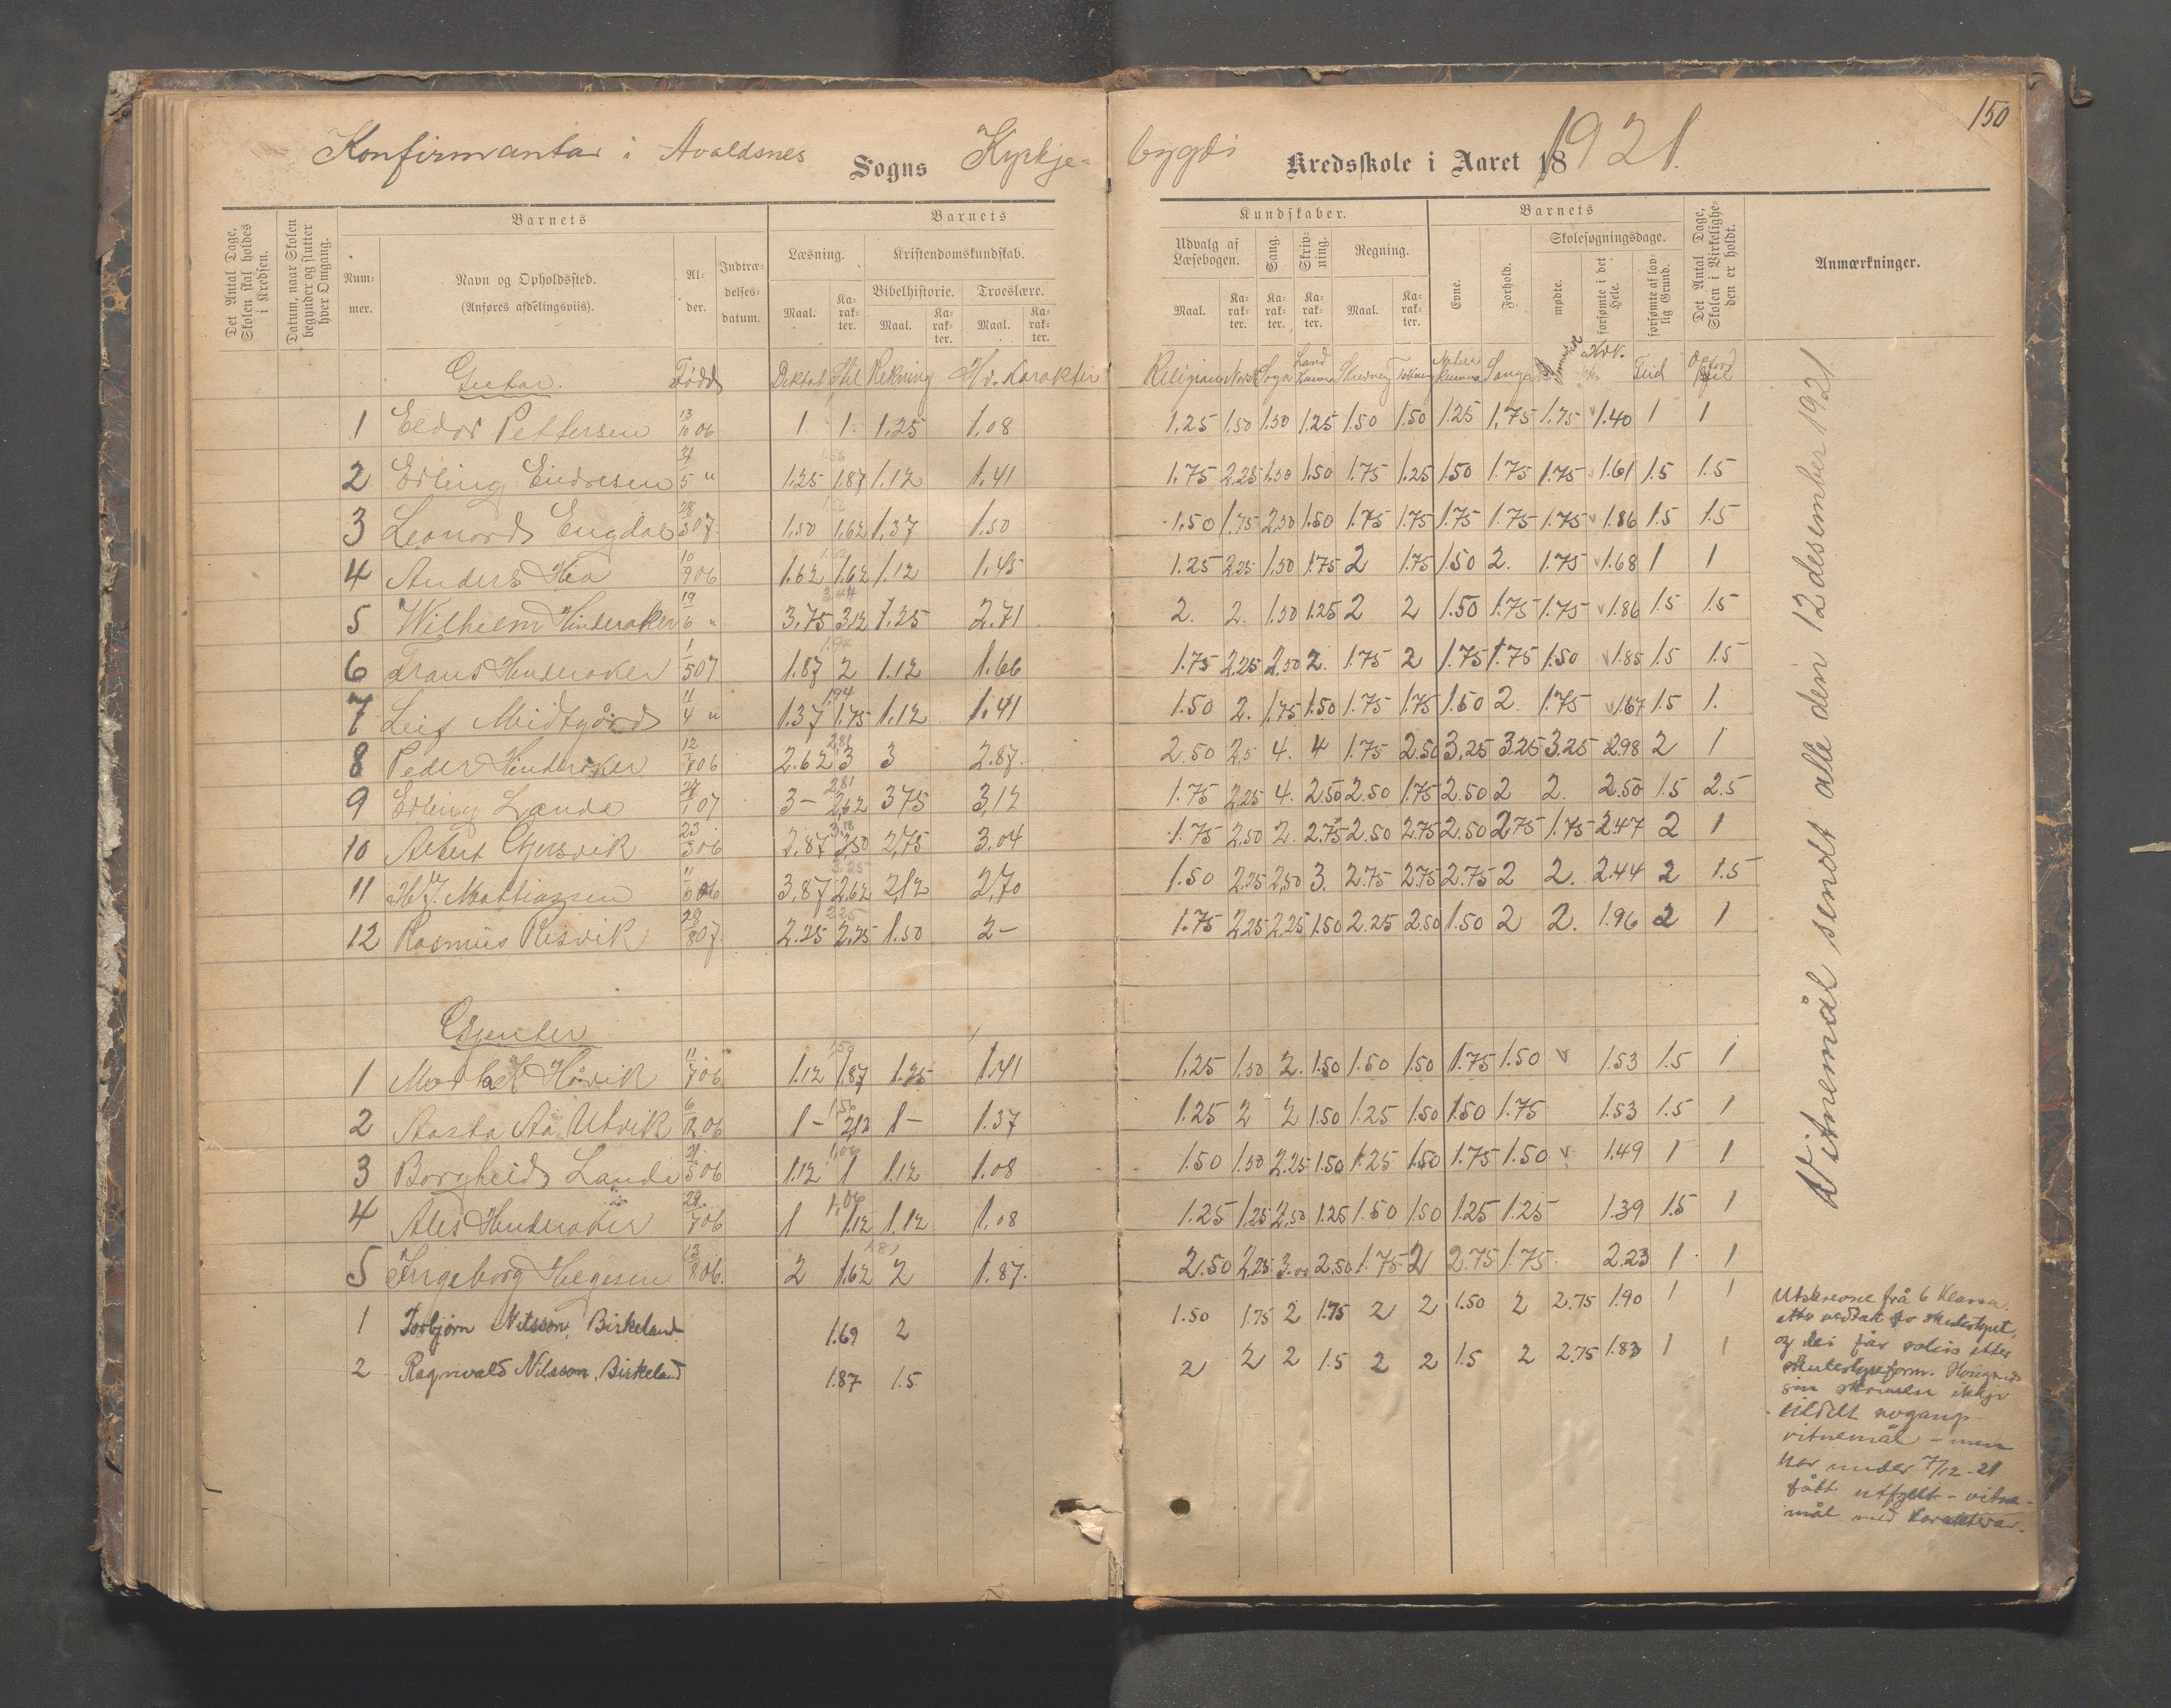 150
Konfirmantar i Avaldsnes Sogns Kyrkje- bygdi Kredsskole i Aaret 18 1921.
Det Antal Dage, Skolen skal holdes i Kredsen.
Datum, naar Skolen begynder og slutter hver Omgang.
Barnets
Nummer.
Navn og Opholdssted.
(Anføres afdelingsviis).
Alder.
Indtrædelsesdatum.
Barnets
Læsning.
Kristendomskundskab.
Bibelhistorie.
Troeslære.
Maal.
Karakter.
Maal.
Karakter.
Maal.
Karakter.
Kundskaber.
Udvalg af Læsebogen.
Sang.
Skrivning.
Regning.
Maal.
Karakter.
Karakter.
Karakter.
Maal.
Karakter.
Barnets
Evne.
Forhold.
Skolesøgningsdage.
mødte.
forsømte i det Hele.
forsømte af lovlig Grund.
Det Antal Dage, Skolen i Virkeligheden er holdt.
Anmærkninger.
Gutar. Fødd Diktat Stil Rekning Hv. Karakter Religion Norsk Soga Land kunna Skrivning Tekning Natur kunna Song Hv. K. Flid
1 Eldor Pettersen 13/10 06 1 1 1.25 1.08 1.25 1.50 1.50 1.25 1.50 1.50 1.25 1.75 1.75 1.40 1 1
2 Erling Eidresen 21/5 " 1.25 1.87 1.12 1.41 1.75 2.25 1.50 1.50 1.75 1.25 1.50 1.75 1.75 1.61 1.5 1.5
3 Leonard Engdal 28/3 07. 1.50 1.62 1.37 1.50 1.50 1.75 2.50 1.50 1.75 1.75 1.75 1.75 1.75 1.86 1.5 1.5
4 Anders Hia 10/9 06 1.62 1.62 1.12 1.45 1.25 2.25 1.50 1.75 2 1.75 1.50 2. 1.75 1.68 1 1
5 Wilhelm Hinderaker 19/6 " 3.75 3.12 1.25 2.71 2. 2. 1.50 1.25 2 2 1.50 1.75 1.75 1.86 1.5 1.5
6 Frans Hinderaker 1/5 07 1.87 2 1.12 1.66 1.75 2.25 2.50 2. 1.75 2 1.75 1.75 1.50 1.85 1.5 1.5
7 Leif Midtgård 11/4 " 1.37 1.75 1.12 1.41 1.50 2. 1.75 1.50 1.75 1.75 1.50 2. 1.75 1.67 1.5 1.
8 Peder Hinderaker 12/7 06 2.62 3 3 2.87. 2.50 2.5 4. 4 1.75 2.50 3.25 3.25 3.25 2.98 2 1
9 Erling Lande 27/1 07 3- 2.62 3.75 3,12 1.75 2.25 4. 2.50 2.50 1.75 2.50 2 2. 2.50 1.5 2.5
10 Albert Gjersvik 23/3 06 2.87 3.50 2,75 3.04 1.75 2.50 2. 2.75 2.50 2.75 2.50 2.75 1.75 2.47 2 1
11 Mattiassen 11/6 06 3,87 2.62 2,12 2,70 1.50 2.25 2.50 3. 2.75 2.75 2.75 2 2. 2.44 2 1.5
12 Rasmus Risvik 28/8 07. 2.25 2.25 1.50 2- 1.75 2.25 2.25 1.50 2.25 2.50 1.50 2 2. 1.96 2 1
Gjenter
1 Håvik 11/7 06 1.12 1.87 1.25 1.41 1.25 1.50 2. 1.50 1.50 1.50 1.75 1.50 v 1.53 1.5 1
2 Aasta Aa. Utvik 6/12 06 1- 2,12 1- 1.37 1.25 2 2 1.50 1.25 1.50 1.50 1.75 1.53 1.5 1
3 Borgheid Lande 21/5 06 1.12 1 1.12 1.08 1.50 1.50 2.25 1.50 1.25 1.50 1.75 1.50 v 1.49 1 1
4 Alis Hinderaker 29/7 06 1 1.12 1.12 1.08 1.25 1.25 2.50 1.25 1.50 1.50 1.25 1.25 1.39 1.5 1
5 Ingeborg Helgesen 13/8 06. 2 1.62 2 1.87. 2.50 2.25 3.00 2.50 1.75 2 2.75 1.75. 2.23 1 1
1 Torbjørn Nilsson, Birkeland 1.69 2 1.50 1.75 2 1.75 2 2 1.50 2 2.75 1.90 1 1
2 Ragnvald Nilsson, Birkeland 1.87 1.5 2 2 2 1.5 2 2 1.5 2 2.75 1.83 1 1
Vitnemål sendt alle den 12 desember 1921
Utskrevne frå 6 klassa.
etter vedtak av skulestyret,
og dei får etter
skulestyreform.
ikkje
tildelt avgangs-
vitnemål - men
har under 7/12-21
fått utfyllt - vitne-
mål med karakterar.